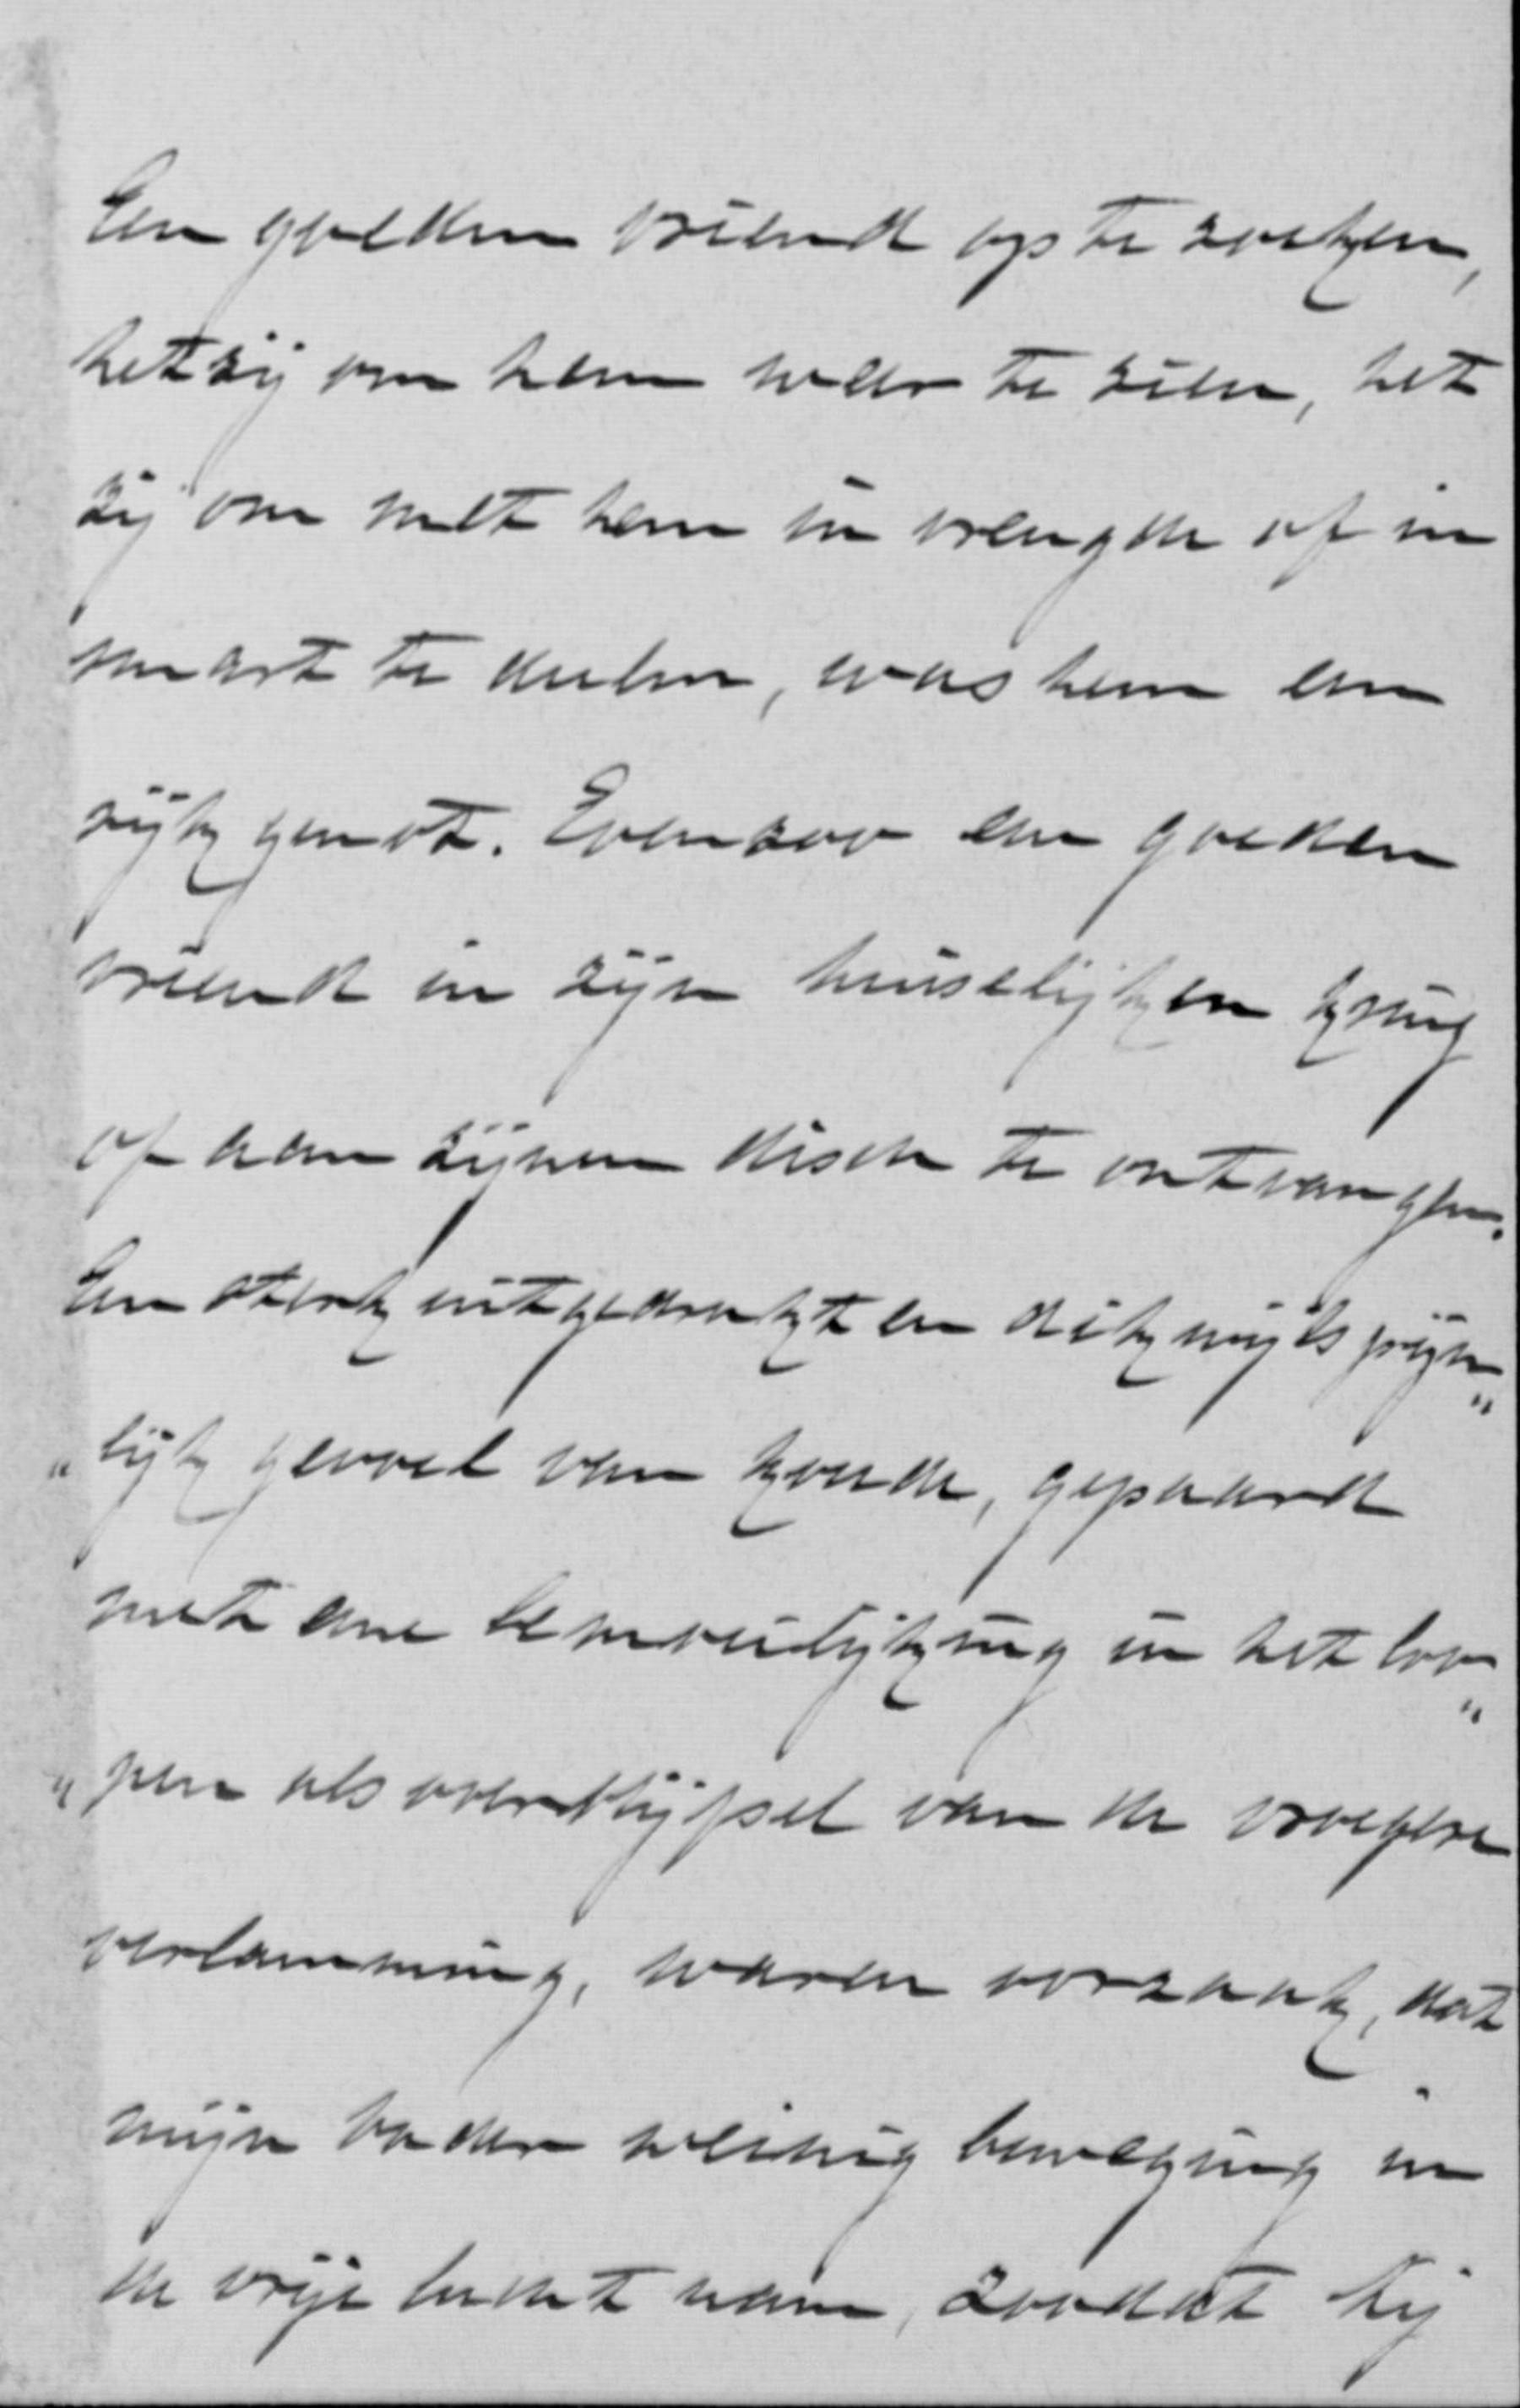 Een goeden vriend op te zoeken,
hetzij om hem weer te zien, het
zij om met hem in vreugde of in
smart te deelen, was hem een
rijk genot. Evenzoo een goeden
vriend in zijn huiselijken kring
of aan zijnen disch te ontvangen.
Een sterk uitgedrukt en dikwijls pijn„
„lijk gevoel van koude, gepaard
met eene bemoeilijking in het loo„
„pen als overblijfsel van de vroegere
verlamming, waren oorzaak, dat
mijn vader weinig beweging in
de vrije lucht nam, zoodat hij